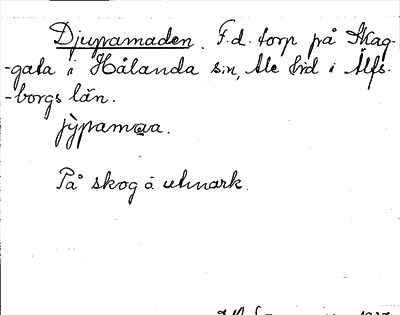 Djupamaden. F.d. torp på Skag-
-gata i Hålanda sn, Ale hd i Älfs-
-borgs län.
jỳpamaa.
På skog å utmark.